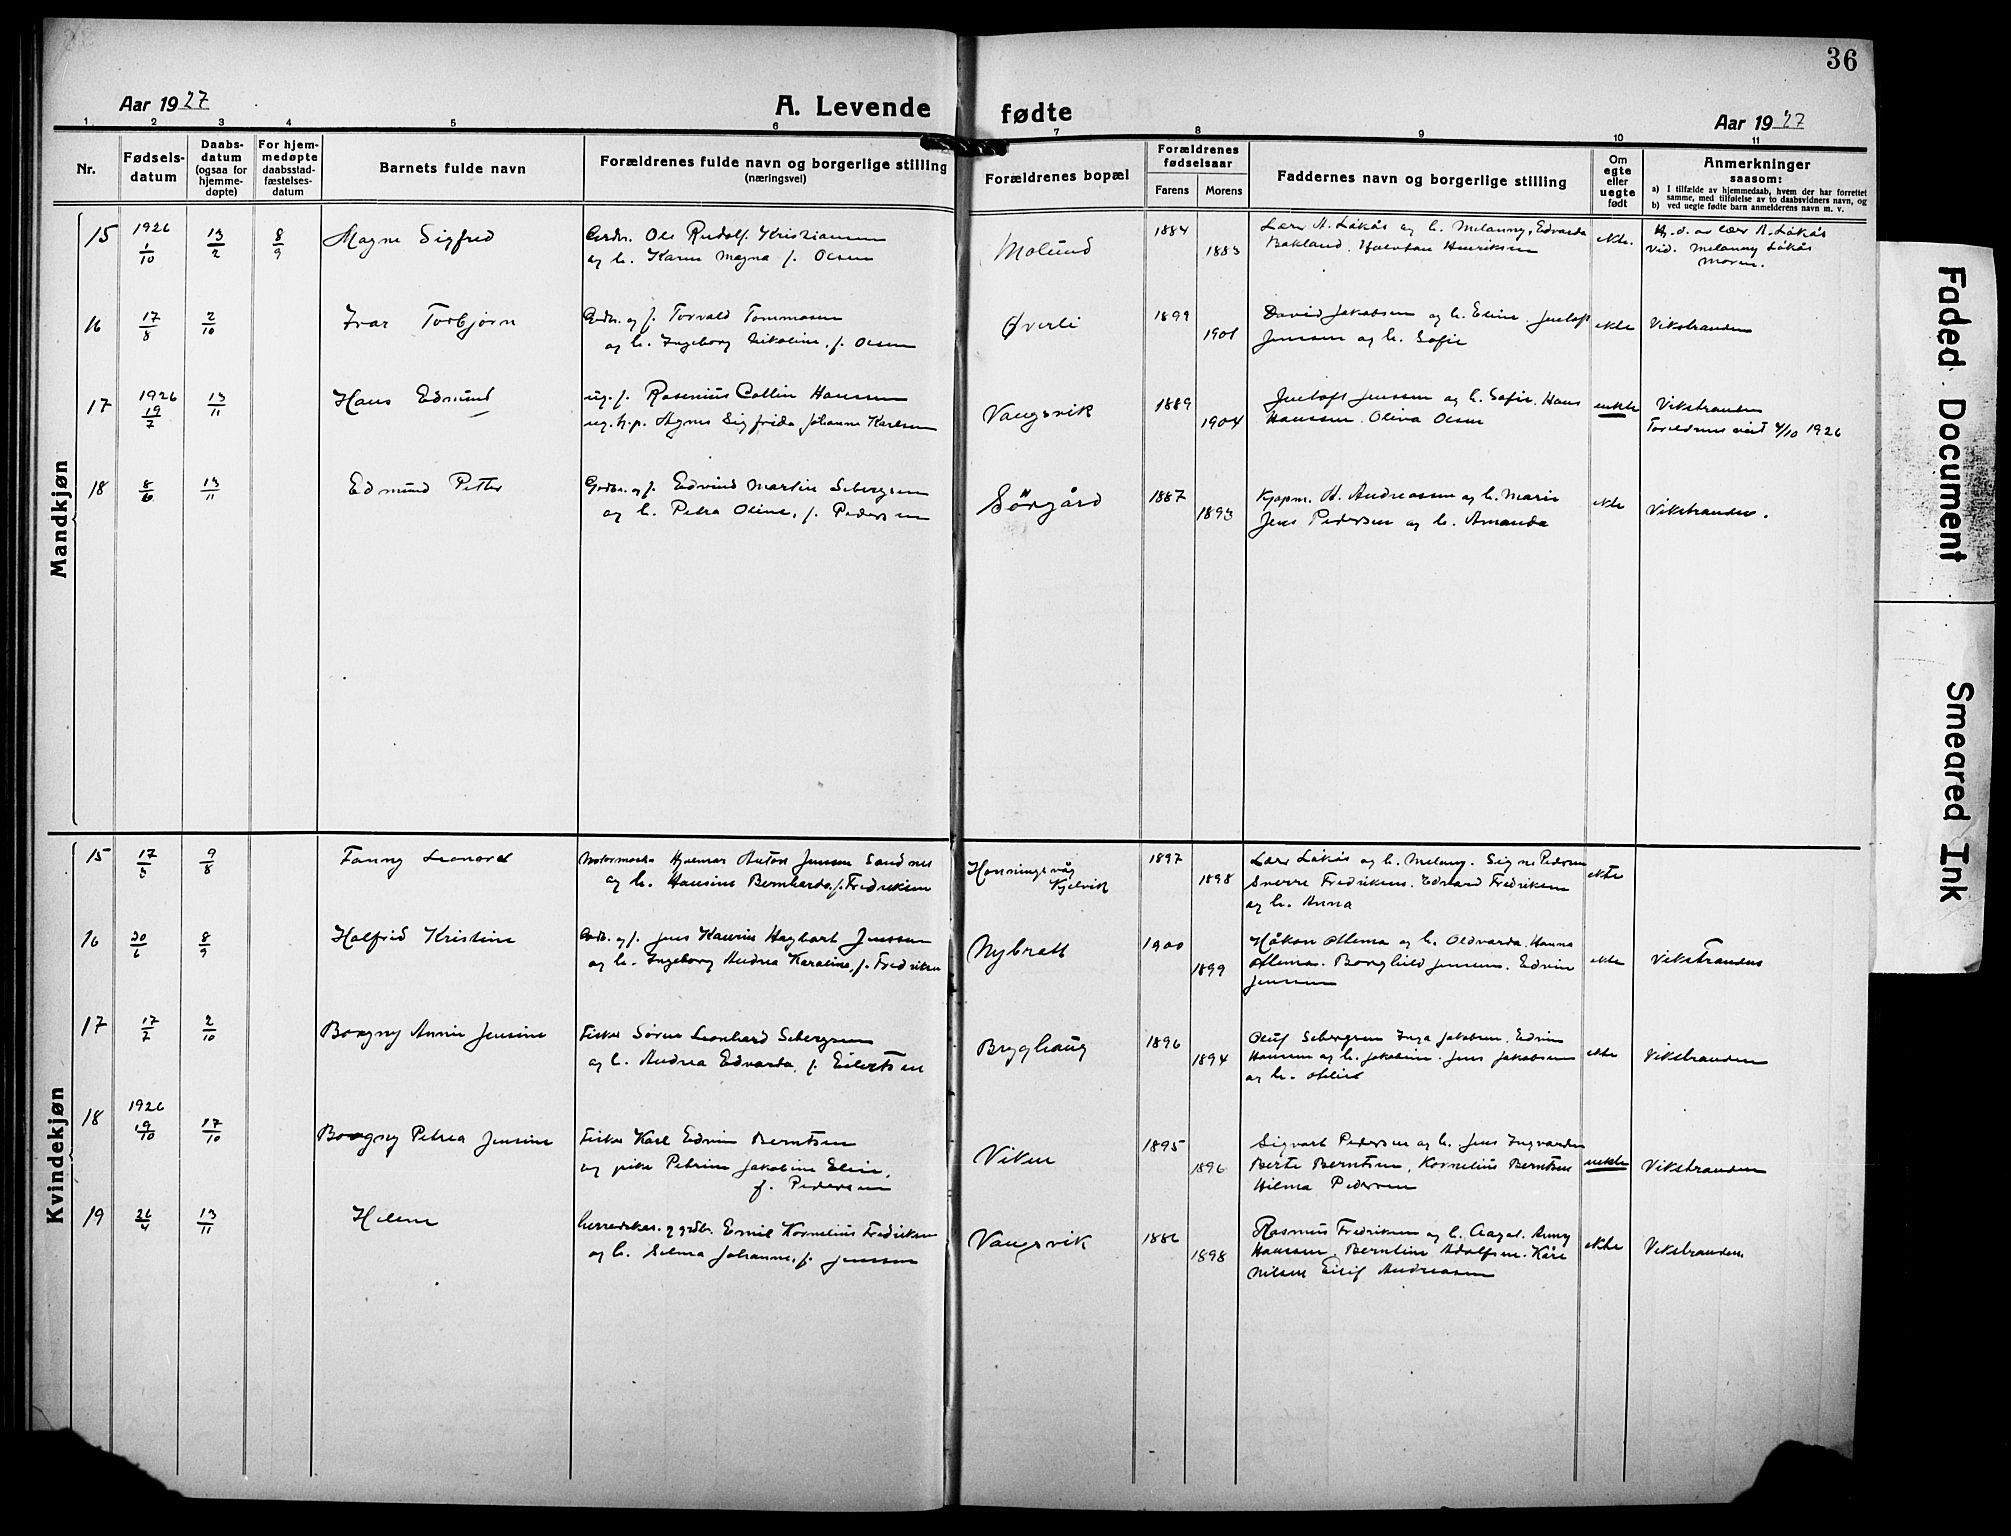 36
Aar 1927
A. Levende fødte
Aar 1927
1 2 3 4 5 6 7 8 9 10 11
Nr.
Fødsels-
datum
Daabs-
datum
(ogsaa for
hjemme-
døpte)
For hjem-
medøpte
daabsstad-
fæstelses-
datum
Barnets fulde navn
Forældrenes fulde navn og borgerlige stilling
(næringsvei)
Forældrenes bopæl
Forældrenes
fødselsaar
Farens Morens
Faddernes navn og borgerlige stilling
Om
egte
eller
uegte
født
Anmerkninger
saasom:
a) I tilfælde av hjemmedaab, hvem der har forrettet
samme, med tilføielse av to daabsvidners navn, og
b) ved uegte fødte barn anmelderens navn m. v.
Mandkjøn
15 1926 1/10 13/2 8/9 Magne Sigfred
Ole Rudolf Kristiansen
og h. Karen Magna f. Olsen
Molund 1884 1883
Lær A. Løkås og h. Melanny, Edvarda
Bakland. Henriksen
ekte.
H. d. av lær A. Løkås
Vid. Melanny Løkås
Moren.
16 17/8 2/10 Ivar Torbjørn
Grdbr. og f. Torvald Tommasen
og h. Ingeborg Nikoline, f. Olsen
Øverli 1899 1901
David Jakobsen og h. Eline. Justoft
Jenssen og h. Sofie
ekte Vikstranden
17 1926 19/7 13/11 Hans Edmund
ug. f. Rasenius Collin Hansen
ug. h. p. Agnes Sigfrida Johanne Karlsen
Vangsvik 1889 1904
Justoft Jenssen og h. Sofie. Hans
Hanssen. Oliva Olsen
uekte Vikstranden
Foreldrene viet 4/10 1926
18 8/6 13/11 Edmund Petter
Grdbr. og f. Edvind Martin Sebergsen
og h. Petra Oline, f. Pedersen
Sørgård 1887 1893
Kjøpm. A. Andreassen og h. Marie
Jens Pedersen og h. Amanda
ekte Vikstranden.
Kvindekjøn
15 17/5 9/8 Fanny Leonore
Hjalmar Anton Jensen Sandnes
og h. Hansine Bernharda, f. Fredriksen
Honningsvåg
Kjelvik
1897 1898
Lær Løkås og h. Melany. Signe Pedersen
Sverre Fredriksen. Edvard Fredriksen
og h. Anna
ekte
16 20/6 8/9 Halfrid Kristine
Grdb. og f. Jens Kaurin Hagbart Jenssen
og h. Ingeborg Andrea Karoline, f. Fredriksen
Nybrott 1900 1899
Håkon Attema og h. Oldvarda. Hanna
Attema. Borghild Jensen. Edvin
Jenssen
ekte Vikstranden
17 17/7 2/10 Borgny Annie Jensine
Fisker Søren Leonhard Sebergsen
og h. Andrea Edvarda, f. Eilertsen
Brygghaug 1896 1894
Oluf Sebergsen Inga Jakobsen. Edvin
Hansen og h. Jakobine. Jens Jakobsen
og h. Otilie
ekte Vikstranden
18 1926 19/10 17/10 Borgny Petrea Jensine
Fisker Karl Edvin Berntsen
og pike Petrine Jakobine Eline,
f. Pedersen
Viken 1895 1896
Sigvart Pedersen og h. Jens Ingvardsen
Berte Berntsen, Kornelius Berntsen
Hilma Pedersen
uekte Vikstranden
19 26/4 13/11 Helene
herredskas. og grdbr. Emil Kornelius Fredriksen
og h. Selma Johanne, f. Jenssen
Vangsvik 1886 1898
Rasmus Fredriksen og h. Aagot. Anny
Hanssen, Berntine Adolfsen. Kåre
Nilsen Eilif Andreassen
ekte Vikstranden
Faded Document
Smeared Ink